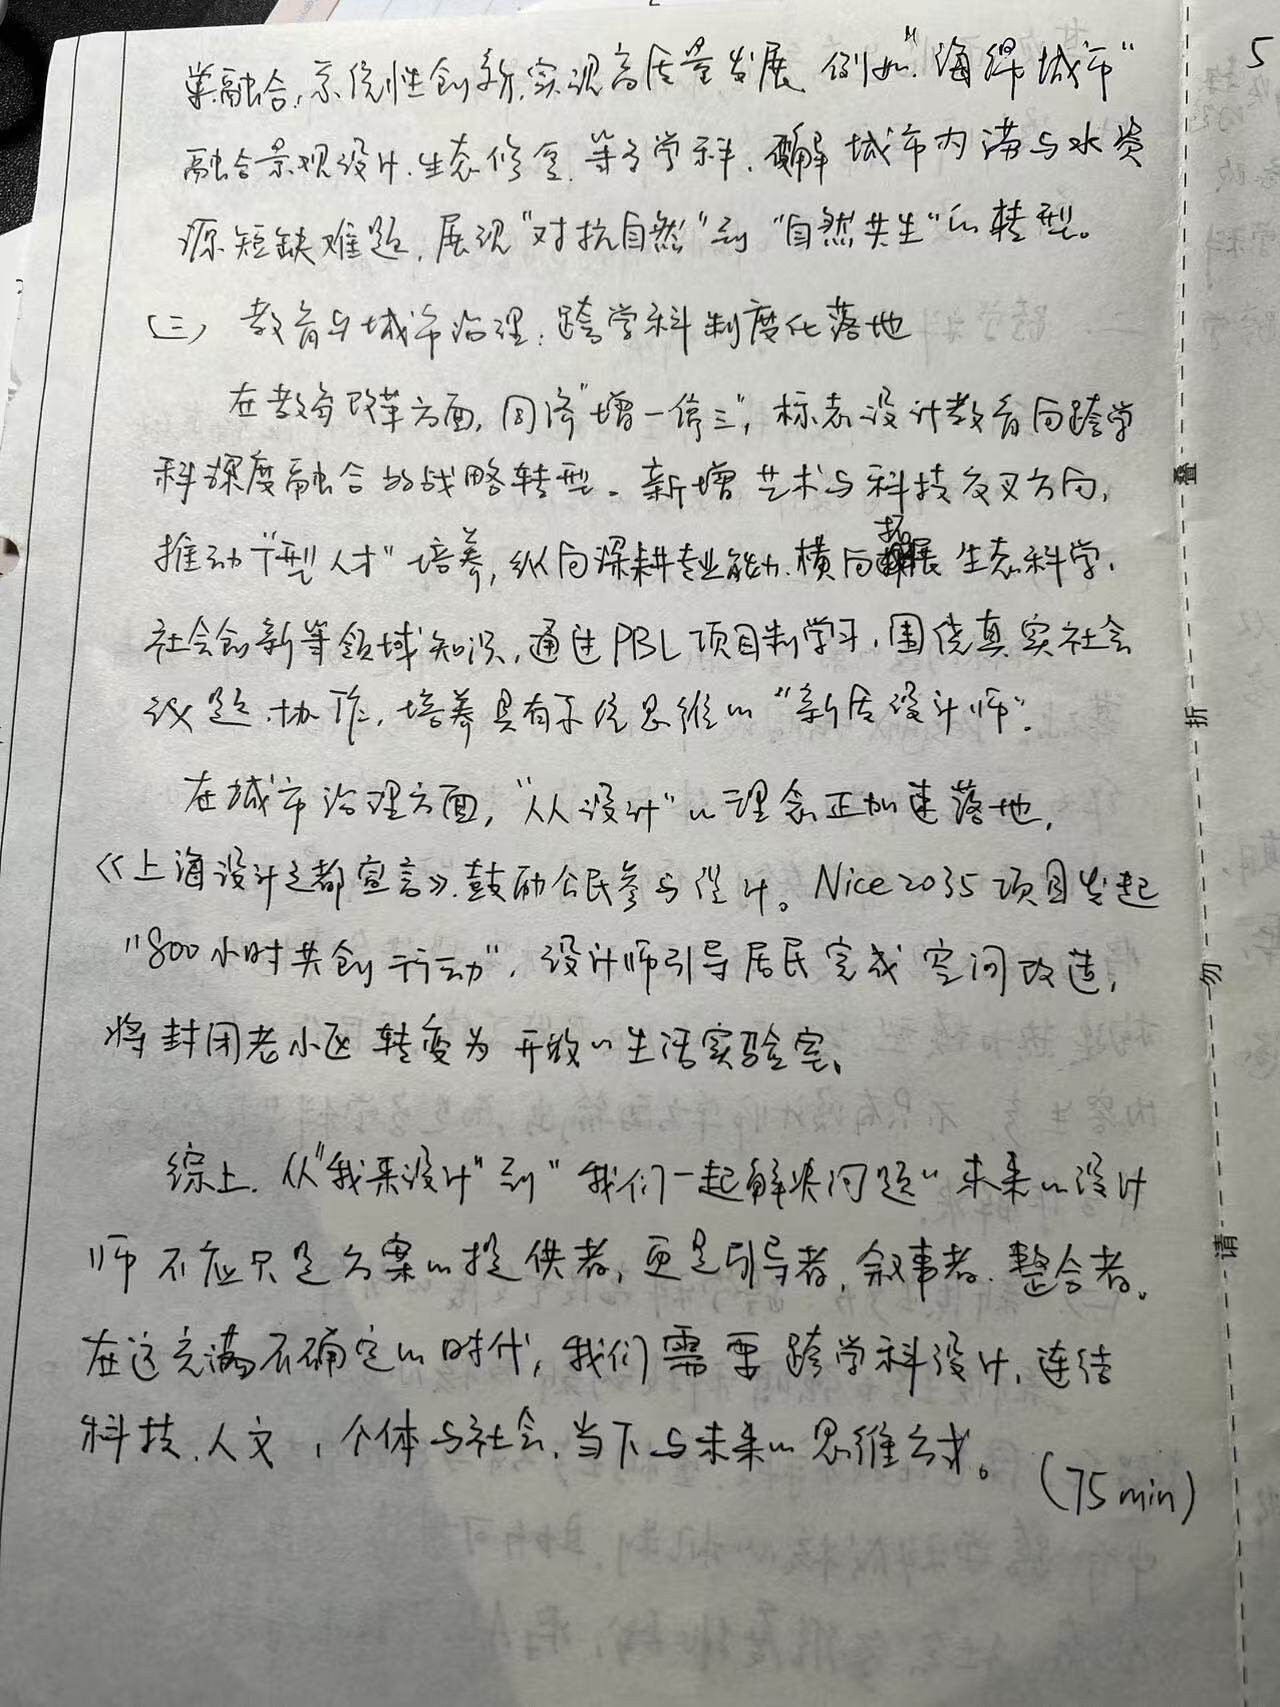 融合,系统性创新,实现高质量发展 例如"海绵城市"
融合景观设计、生态修复、等多学科,破解城市内涝与水资
源短缺难题,展现"对抗自然"到"自然共生"的转型。
(三) 教育与城市治理:跨学科制度化落地
在教育改革方面,同济"增一停三",标志设计教育向跨学
科深度融合的战略转型。新增艺术与科技交叉方向,
推动"T型人才"培养,纵向深耕专业能力、横向拓展生态科学、
社会创新等领域知识,通过PBL项目制学习,围绕真实社会
议题、协作,培养具有系统思维的"新质设计师"。
在城市治理方面,"人人设计"的理念正加速落地,
《上海设计之都宣言》鼓励公民参与设计。Nice2035项目发起
"800小时共创行动",设计师引导居民完成空间改造,
将封闭老小区转变为开放的生活实验室。
综上,从"我来设计"到"我们一起解决问题"未来的设计
师不应只是方案的提供者,更是引导者、叙事者、整合者。
在这充满不确定的时代,我们需要跨学科设计,连结
科技、人文,个体与社会,当下与未来的思维方式。
(75min)
5
叠
折
勿
请